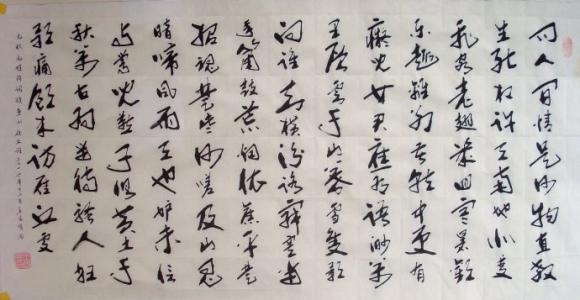 问人间情是何物直教
生死相许天南地北双
飞客老翅几回寒暑欢
乐趣离别苦就中更有
痴儿女君应有语渺万
里层云千山暮雪只影
向谁去横汾路寂寞当
年箫鼓荒烟依旧平楚
招魂楚些何嗟及山鬼
暗啼风雨天也妒未信
与莺儿燕子俱黄土千
秋万古为留待骚人狂
歌痛饮来访雁丘处